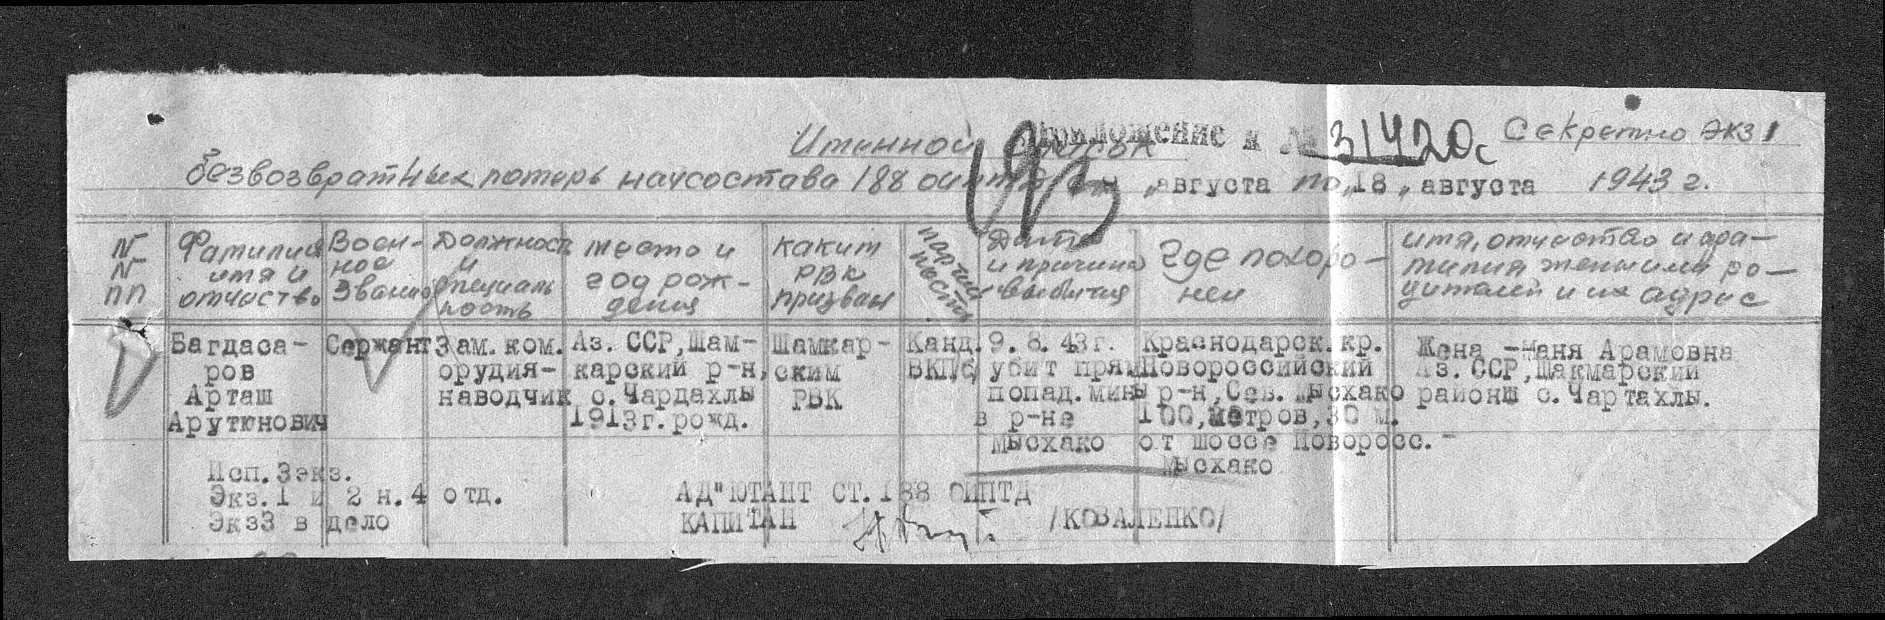 Именной список Приложение к № 31420с Секретно экз 1
безвозвратных потерь начсостава 188 оиптд „ августа по „18„ августа 1943 г.
№ № пп
Фамилия имя и отчество
Военное звание
Должность и специальность
место и год рождения
каким РВК призван
партийность
Дата и причина выбытия
Где похоронен
имя, отчество и фамилия жены или родителей и их адрес
Багдаса-
ров
Арташ
Арутюнович
Сержант
Зам. ком.
орудия-
наводчик
Аз. ССР, Шам-
карский р-н,
с. Чардахлы
1913г. рожд.
Шамкар-
ским
РВК
Канд.
ВКП/б/
9. 8. 43г.
убит прям
попад. мины
в р-не
Мысхако
Краснодарск. кр.
Новороссийский
р-н, Сев. Мысхако
100, метров, 30 м.
от шоссе Новоросс.-
Мысхако
Жена - Маня Арамовна
Аз. ССР, Шакмарский
район с. Чартахлы.
Исп. 3экз.
Экз. 1 и 2 н. 4 отд.
Экз3 в дело
АД"ЮТАНТ СТ. 188 ОИПТД
КАПИТАН /КОВАЛЕНКО/